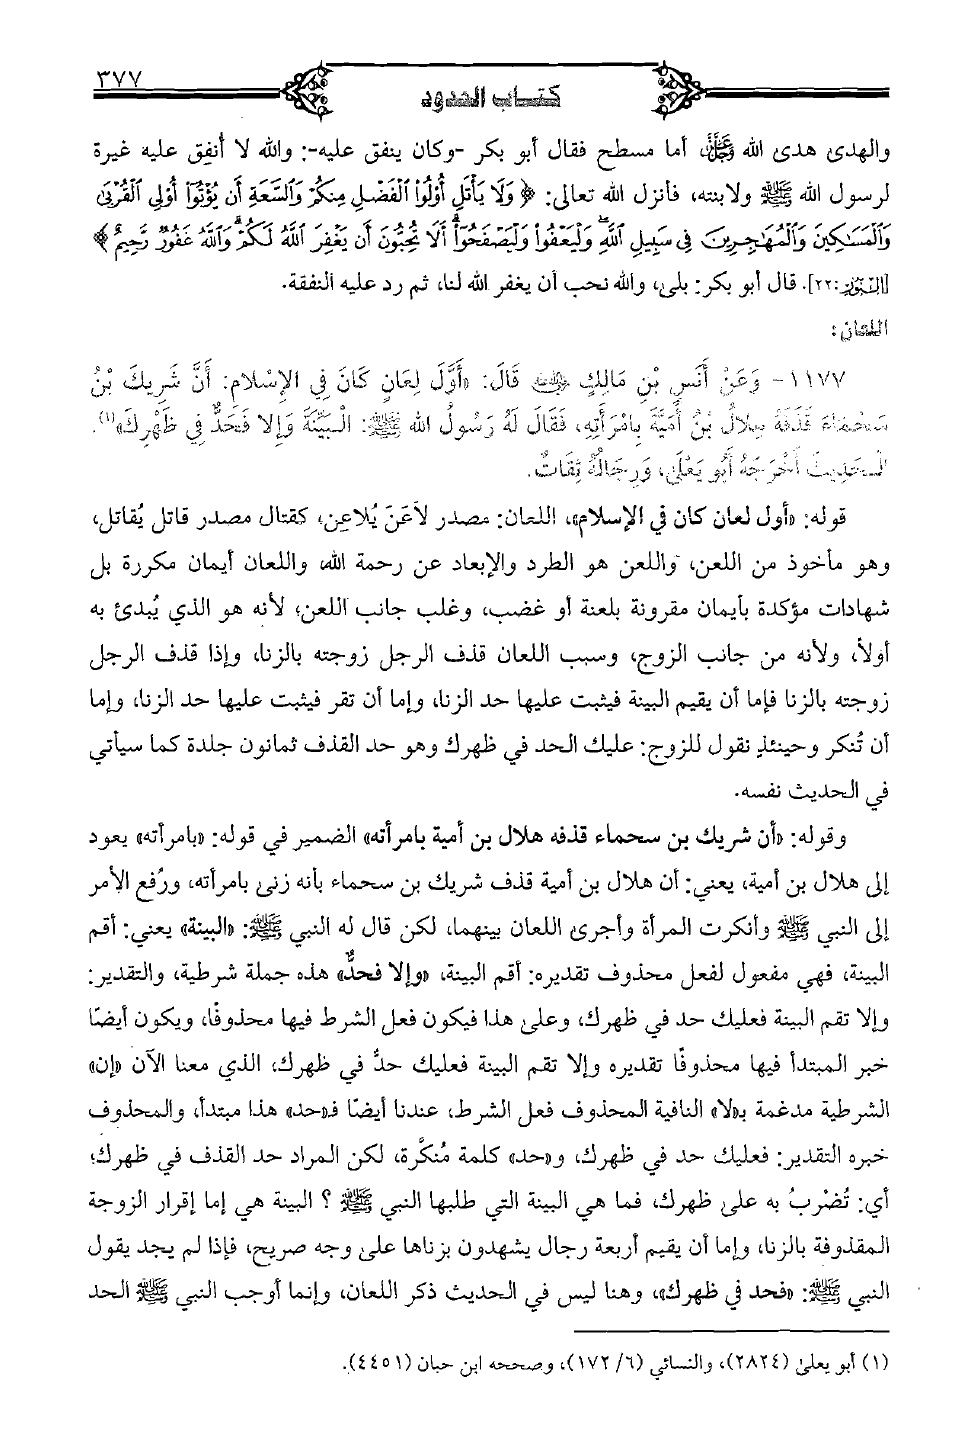 ٣٧٧
كتاب الحدود
والهدى هدى الله ﷻ، أما مسطح فقال أبو بكر -وكان ينفق عليه-: والله لا أُنفِق عليه غيرة
لرسول الله ﷺ ولابنته، فأنزل الله تعالى: ﴿ وَلَا يَأْتَلِ أُوْلُواْ ٱلْفَضْلِ مِنكُمْ وَٱلسَّعَةِ أَن يُؤْتُوٓاْ أُوْلِي ٱلْقُرْبَىٰ
وَٱلْمَسَٰكِينَ وَٱلْمُهَٰجِرِينَ فِي سَبِيلِ ٱللَّهِۖ وَلْيَعْفُواْ وَلْيَصْفَحُوٓاْۗ أَلَا تُحِبُّونَ أَن يَغْفِرَ ٱللَّهُ لَكُمْۗ وَٱللَّهُ غَفُورٌ رَّحِيمٌ ﴾
[النور: ٢٢]. قال أبو بكر: بلى، والله نحب أن يغفر الله لنا، ثم رد عليه النفقة.
اللعان:
١١٧٧- وَعَنْ أَنَسِ بْنِ مَالِكٍ رضي الله عنه قَالَ: «أَوَّلَ لِعَانٍ كَانَ فِي الإِسْلامِ: أَنَّ شَرِيكَ بْنَ
سَحْمَاءَ قَذَفَهُ هِلالُ بْنُ أُمَيَّةَ بِامْرَأَتِهِ، فَقَالَ لَهُ رَسُولُ الله ﷺ: الْبَيِّنَةَ وَإِلا فَحَدٌّ فِي ظَهْرِكَ»(١).
الْحَدِيثَ أَخْرَجَهُ أَبُو يَعْلَى، وَرِجَالُهُ ثِقَاتٌ.
قوله: «أول لعان كان في الإسلام»، اللعان: مصدر لاَعَنَ يُلاعِن، كقتال مصدر قاتل يُقاتل،
وهو مأخوذ من اللعن، واللعن هو الطرد والإبعاد عن رحمة الله، واللعان أيمان مكررة بل
شهادات مؤكدة بأيمان مقرونة بلعنة أو غضب، وغلب جانب اللعن؛ لأنه هو الذي يُبدئ به
أولاً، ولأنه من جانب الزوج، وسبب اللعان قذف الرجل زوجته بالزنا، وإذا قذف الرجل
زوجته بالزنا فإما أن يقيم البينة فيثبت عليها حد الزنا، وإما أن تقر فيثبت عليها حد الزنا، وإما
أن تُنكر وحينئذٍ نقول للزوج: عليك الحد في ظهرك وهو حد القذف ثمانون جلدة كما سيأتي
في الحديث نفسه.
وقوله: «أن شريك بن سحماء قذفه هلال بن أمية بامرأته» الضمير في قوله: «بامرأته» يعود
إلى هلال بن أمية، يعني: أن هلال بن أمية قذف شريك بن سحماء بأنه زنى بامرأته، ورُفع الأمر
إلى النبي ﷺ وأنكرت المرأة وأجرى اللعان بينهما، لكن قال له النبي ﷺ: «البينة» يعني: أقم
البينة، فهي مفعول لفعل محذوف تقديره: أقم البينة، «وإلا فحدٌّ» هذه جملة شرطية، والتقدير:
وإلا تقم البينة فعليك حد في ظهرك، وعلى هذا فيكون فعل الشرط فيها محذوفًا، ويكون أيضًا
خبر المبتدأ فيها محذوفًا تقديره وإلا تقم البينة فعليك حدٌّ في ظهرك، الذي معنا الآن «إن»
الشرطية مدغمة بـ«لا» النافية المحذوف فعل الشرط، عندنا أيضًا فـ«حد» هذا مبتدأ، والمحذوف
خبره التقدير: فعليك حد في ظهرك، و«حد» كلمة مُنكَّرة، لكن المراد حد القذف في ظهرك؛
أي: تُضْربُ به على ظهرك، فما هي البينة التي طلبها النبي ﷺ ؟ البينة هي إما إقرار الزوجة
المقذوفة بالزنا، وإما أن يقيم أربعة رجال يشهدون بزناها على وجه صريح، فإذا لم يجد يقول
النبي ﷺ: «فحد في ظهرك»، وهنا ليس في الحديث ذكر اللعان، وإنما أوجب النبي ﷺ الحد
(١) أبو يعلى (٢٨٢٤)، والنسائي (٦/ ١٧٢)، وصححه ابن حبان (٤٤٥١).